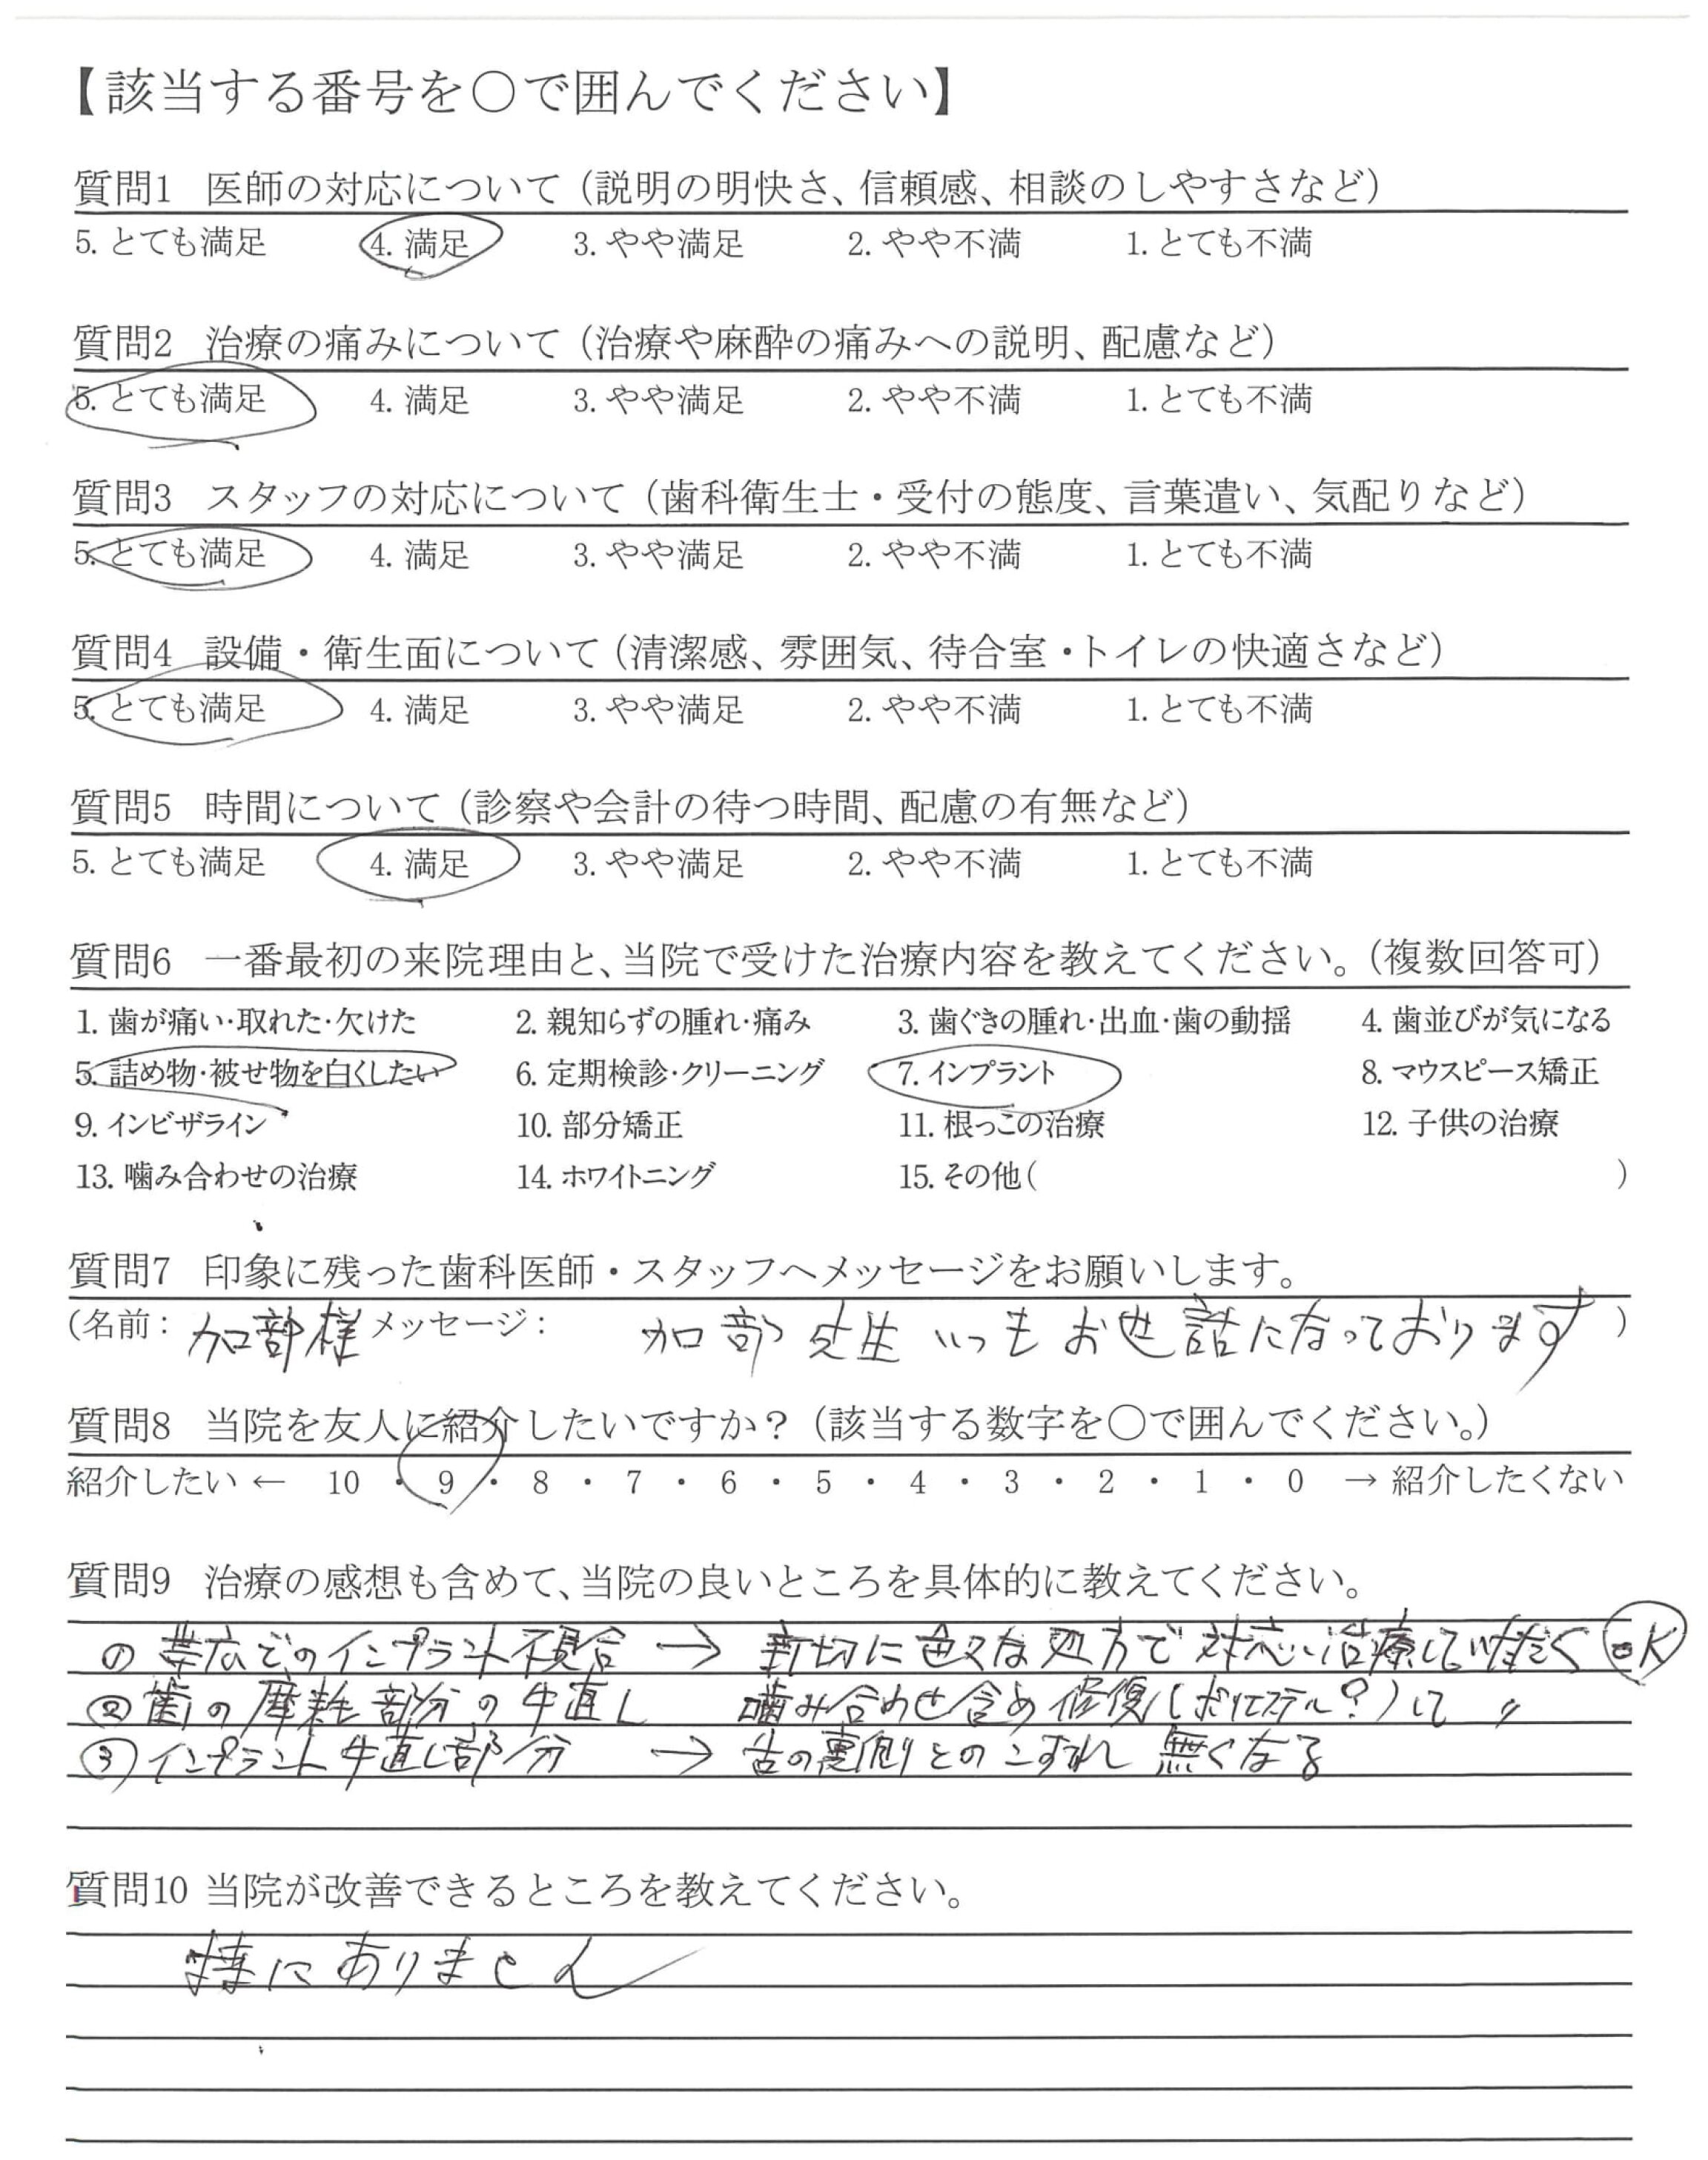 【該当する番号を〇で囲んでください】
質問1 医師の対応について（説明の明快さ、信頼感、相談のしやすさなど）
5. とても満足 4. 満足 3. やや満足 2. やや不満 1. とても不満
質問2 治療の痛みについて（治療や麻酔の痛みへの説明、配慮など）
5. とても満足 4. 満足 3. やや満足 2. やや不満 1. とても不満
質問3 スタッフの対応について（歯科衛生士・受付の態度、言葉遣い、気配りなど）
5. とても満足 4. 満足 3. やや満足 2. やや不満 1. とても不満
質問4 設備・衛生面について（清潔感、雰囲気、待合室・トイレの快適さなど）
5. とても満足 4. 満足 3. やや満足 2. やや不満 1. とても不満
質問5 時間について（診察や会計の待つ時間、配慮の有無など）
5. とても満足 4. 満足 3. やや満足 2. やや不満 1. とても不満
質問6 一番最初の来院理由と、当院で受けた治療内容を教えてください。（複数回答可）
1. 歯が痛い・取れた・欠けた 2. 親知らずの腫れ・痛み 3. 歯ぐきの腫れ・出血・歯の動揺 4. 歯並びが気になる
5. 詰め物・被せ物を白くしたい 6. 定期検診・クリーニング 7. インプラント 8. マウスピース矯正
9. インビザライン 10. 部分矯正 11. 根っこの治療 12. 子供の治療
13. 噛み合わせの治療 14. ホワイトニング 15. その他( )
質問7 印象に残った歯科医師・スタッフへメッセージをお願いします。
(名前： 加部様 メッセージ： 加部先生いつもお世話になっております )
質問8 当院を友人に紹介したいですか？（該当する数字を〇で囲んでください。）
紹介したい ← 10 ・ 9 ・ 8 ・ 7 ・ 6 ・ 5 ・ 4 ・ 3 ・ 2 ・ 1 ・ 0 → 紹介したくない
質問9 治療の感想も含めて、当院の良いところを具体的に教えてください。
① 帯広でのインプラント不具合 → 親切に色々な処方で対応し治療していただく OK
② 歯の摩耗部分の手直し 噛み合わせ含め修復(ポリエステル?)して 〃
③ インプラント手直し部分 → 舌の裏側とのこすれ無くなる
質問10 当院が改善できるところを教えてください。
特にありません